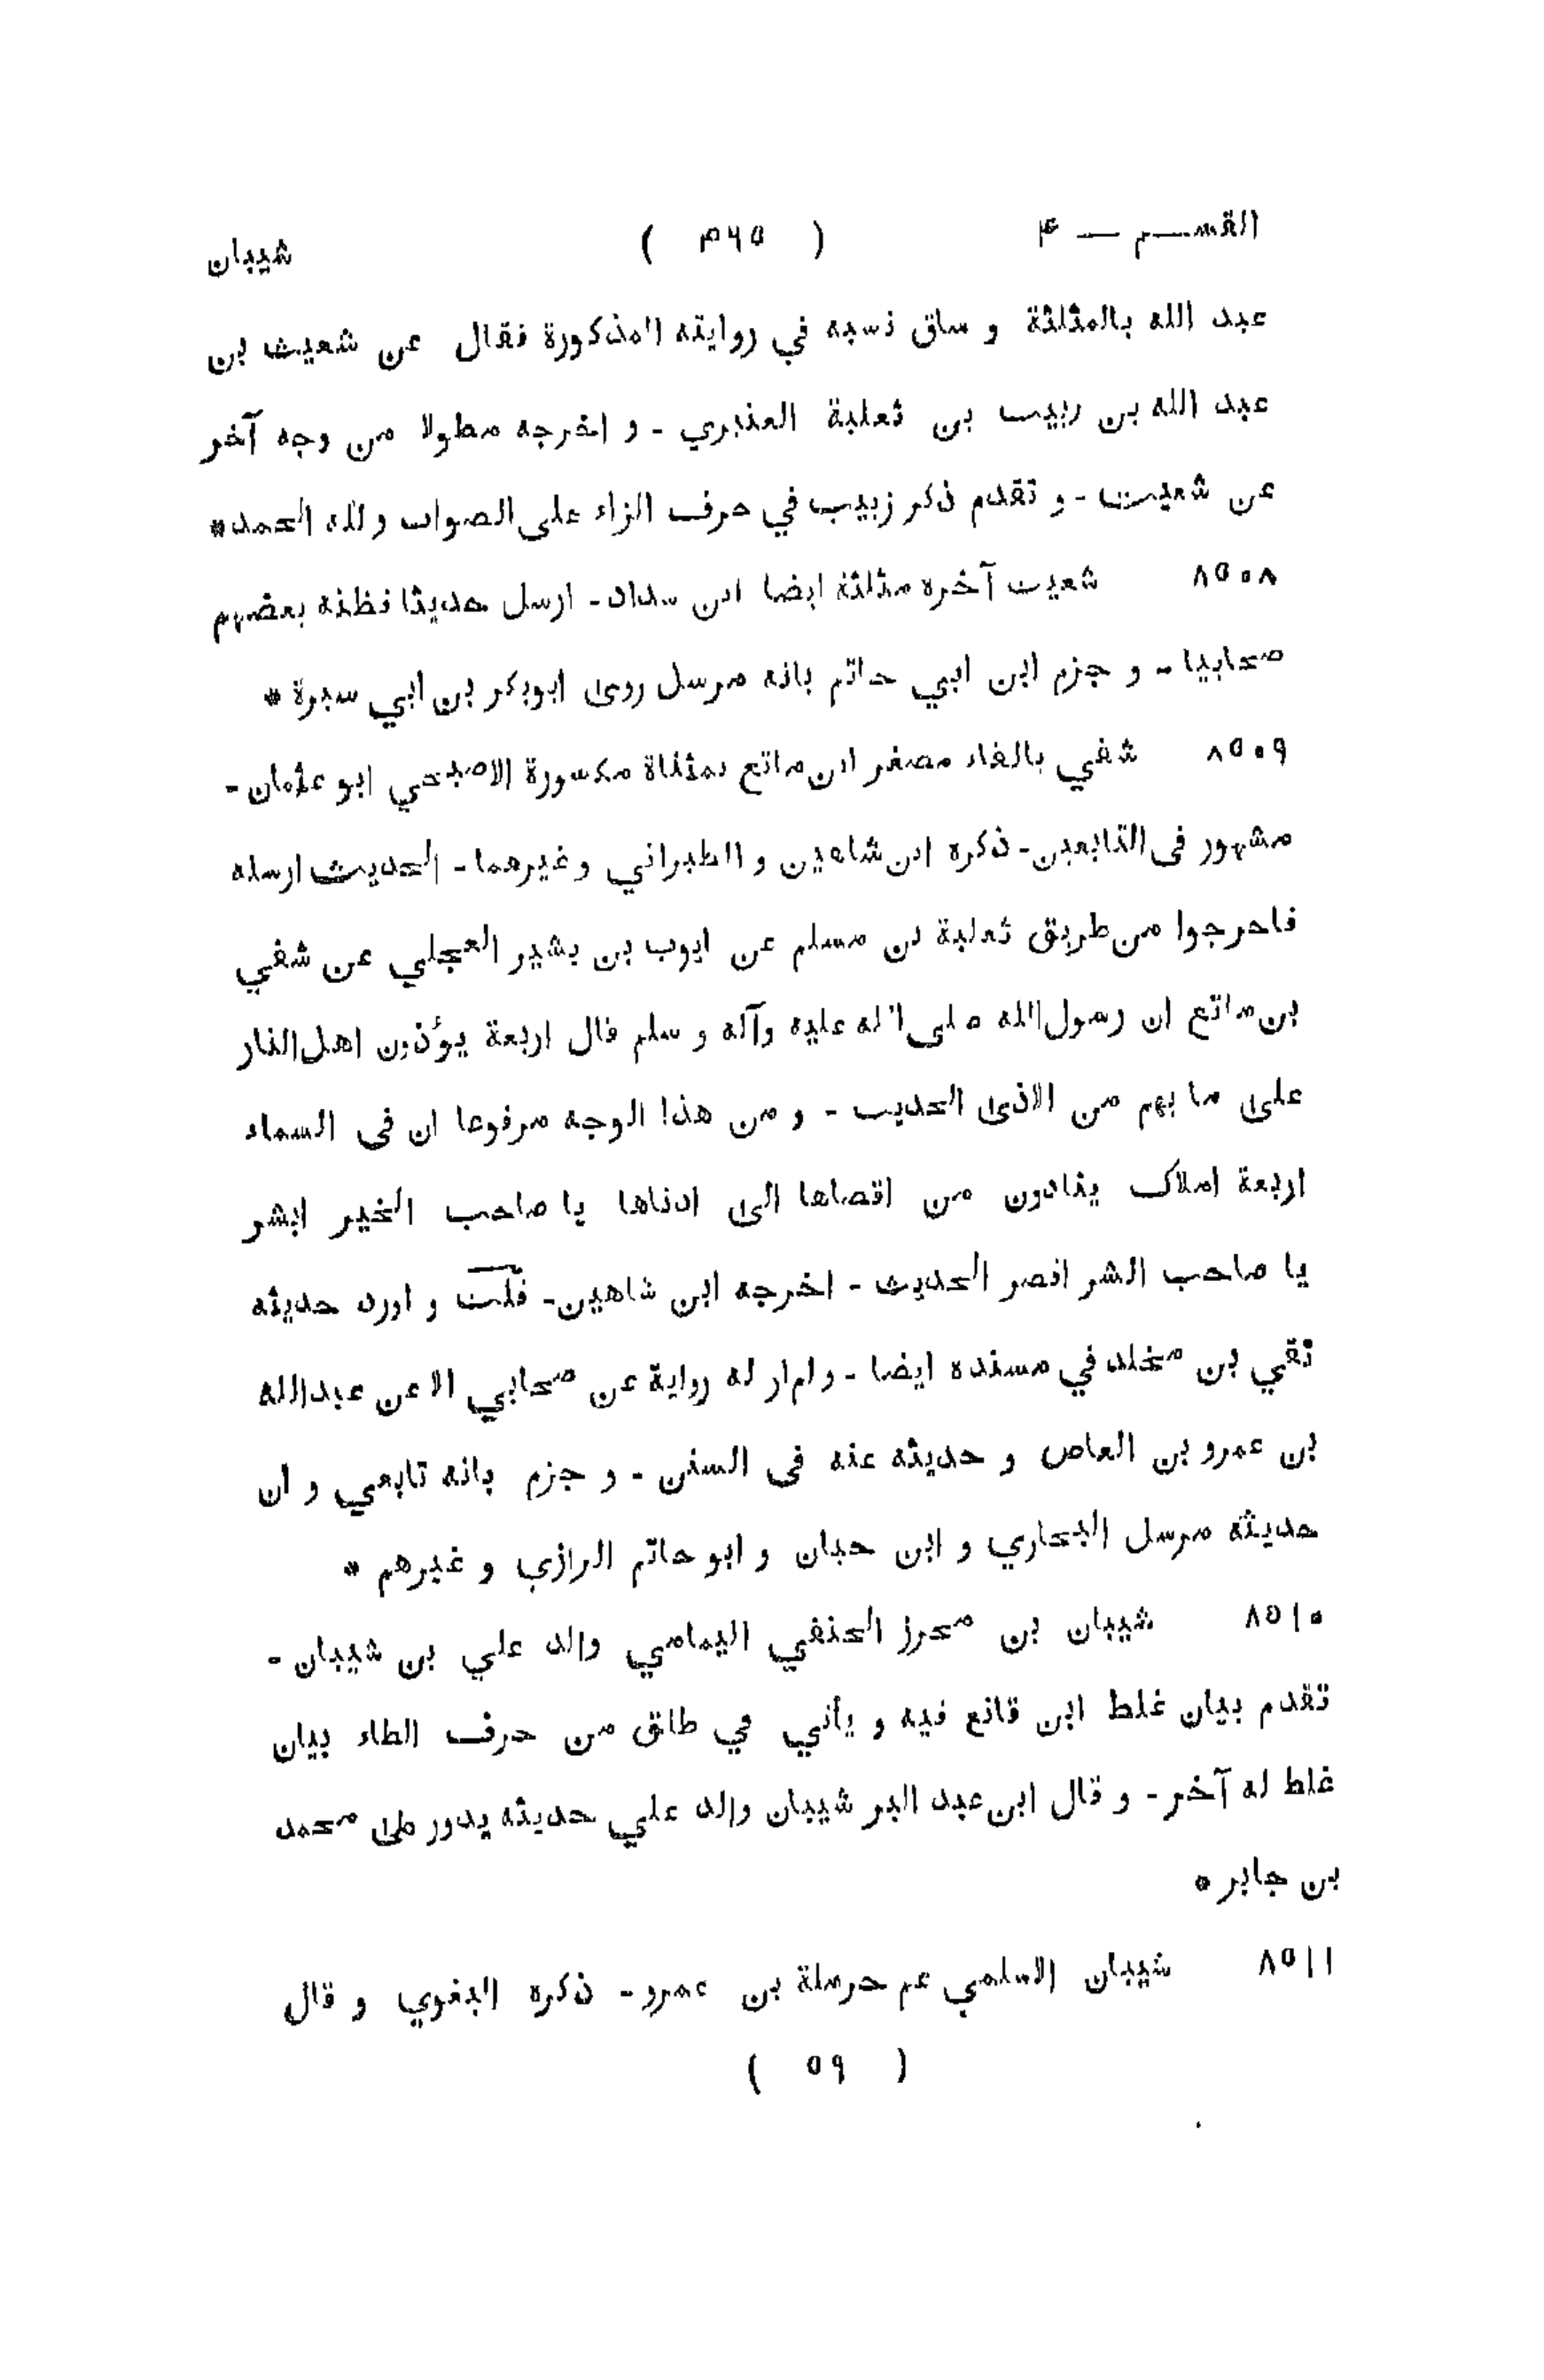 القسم — ۴ ( ۴۶۵ ) شيبان
عبد الله بالمثلثة و ساق نسبه في روايته المذكورة فقال عن شعيث بن
عبد الله بن زبيب بن ثعلبة العنبري - و اخرجه مطولا من وجه آخر
عن شعيث - و تقدم ذكر زبيب في حرف الزاء على الصواب و لله الحمد *
٨٥٠٨ شعيث آخره مثلثة ايضا ابن سداد - ارسل حديثا فظنه بعضهم
صحابيا - و جزم ابن ابي حاتم بانه مرسل روى ابوبكر بن ابي سبرة *
٨٥٠٩ شفي بالفاء مصغر ابن ماتع بمثناة مكسورة الاصبحي ابو عثمان -
مشهور فى التابعين - ذكره ابن شاهين و الطبراني و غيرهما - الحديث ارسله
فاخرجوا من طريق ثعلبة بن مسلم عن ايوب بن بشير العجلي عن شفي
بن ماتع ان رسول الله صلى الله عليه وآله و سلم قال اربعة يؤذون اهل النار
على ما بهم من الاذى الحديث - و من هذا الوجه مرفوعا ان فى السماء
اربعة املاك ينادون من اقصاها الى ادناها يا صاحب الخير ابشر
يا صاحب الشر اقصر الحديث - اخرجه ابن شاهين - قلت و اورد حديثه
بقي بن مخلد في مسنده ايضا - و لم ار له رواية عن صحابي الا عن عبدالله
بن عمرو بن العاص و حديثه عنه فى السنن - و جزم بانه تابعي و ان
حديثه مرسل البخاري و ابن حبان و ابو حاتم الرازي و غيرهم *
٨٥١٠ شيبان بن محرز الحنفي اليمامي والد علي بن شيبان -
تقدم بيان غلط ابن قانع فيه و يأتي في طلق من حرف الطاء بيان
غلط له آخر - و قال ابن عبد البر شيبان والد علي حديثه يدور على محمد
بن جابر *
٨٥١١ شيبان الاسلمي عم حرملة بن عمرو - ذكره البغوي و قال
( ٥٩ )